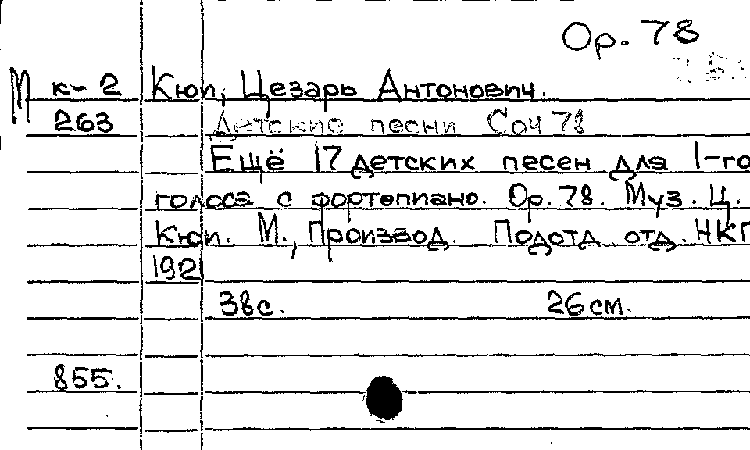 Ор. 78
М к-2 Кюи, Цезарь Антонович.
263 Детские песни Соч 78
Ещё 17 детских песен для 1-го
голоса с фортепиано. Ор. 78. Муз. Ц.
Кюи. М., Производ. Подотд. отд. НКП
1921
38с. 26см.
855.